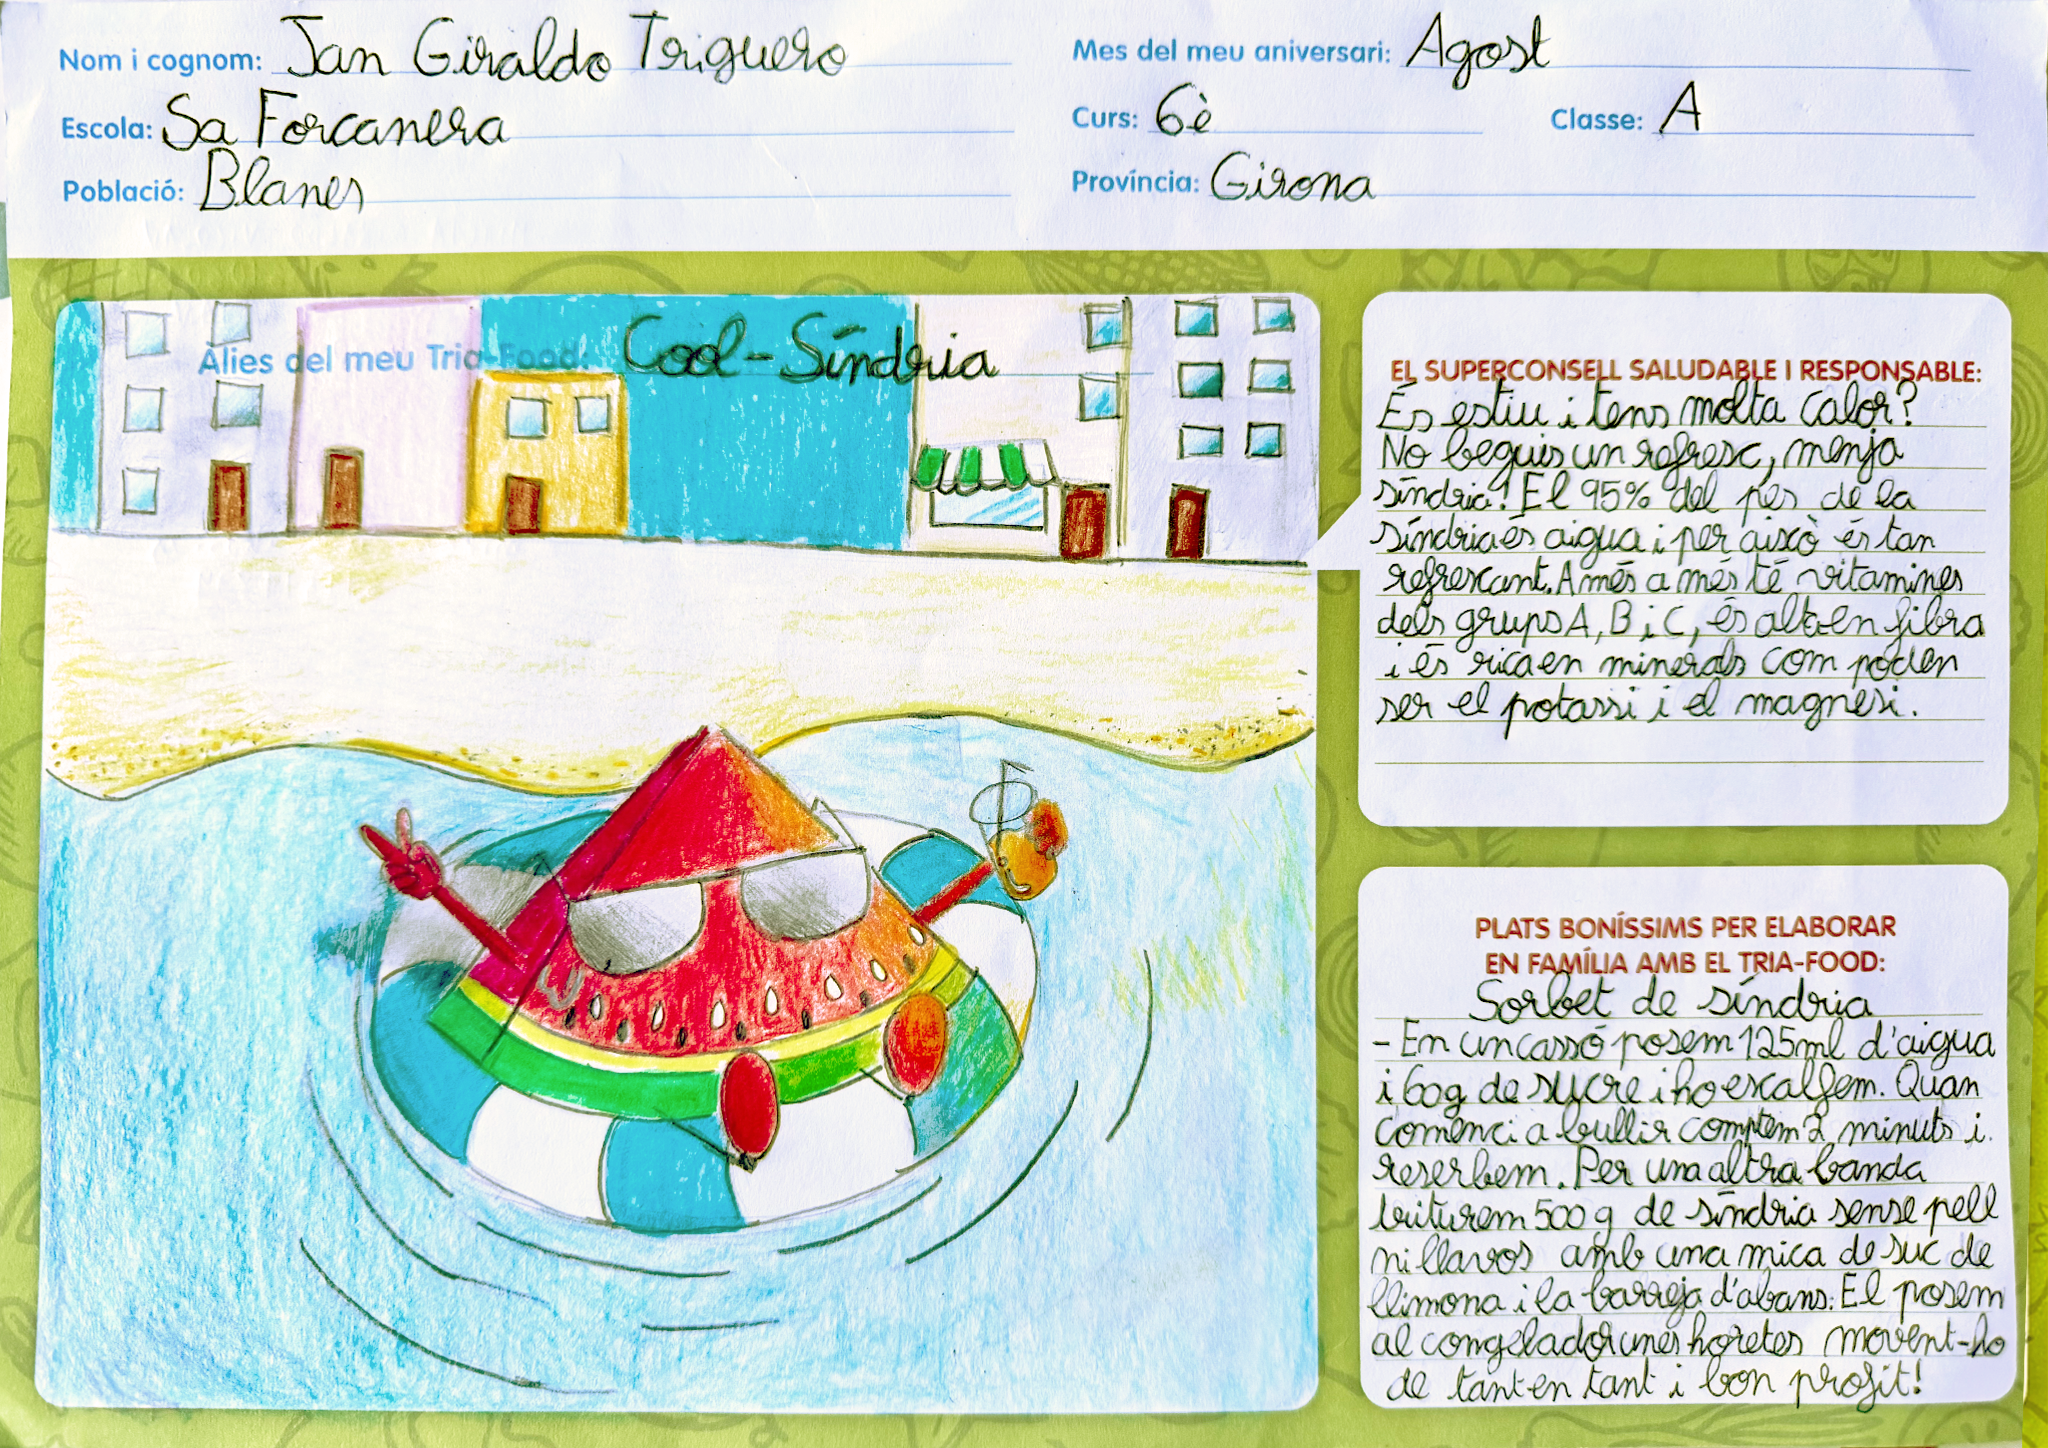 Nom i cognom: Jan Giraldo Triguero
Escola: Sa Forcanera
Població: Blanes
Mes del meu aniversari: Agost
Curs: 6è Classe: A
Província: Girona
Àlies del meu Tria-Food: Cool-Síndria
EL SUPERCONSELL SALUDABLE I RESPONSABLE:
És estiu i tens molta calor?
No beguis un refresc, menja
síndria! El 95% del pes de la
síndria és aigua i per això és tan
refrescant. A més a més té vitamines
dels grups A, B i C, és alta en fibra
i és rica en minerals com poden
ser el potassi i el magnesi.
PLATS BONÍSSIMS PER ELABORAR
EN FAMÍLIA AMB EL TRIA-FOOD:
Sorbet de síndria
- En un cassó posem 125ml d'aigua
i 60g de sucre i ho escalfem. Quan
comenci a bullir comptem 2 minuts i
reserbem. Per una altra banda
triturem 500 g de síndria sense pell
ni llavors amb una mica de suc de
llimona i la barreja d'abans. El posem
al congelador unes horetes movent-ho
de tant en tant i bon profit!